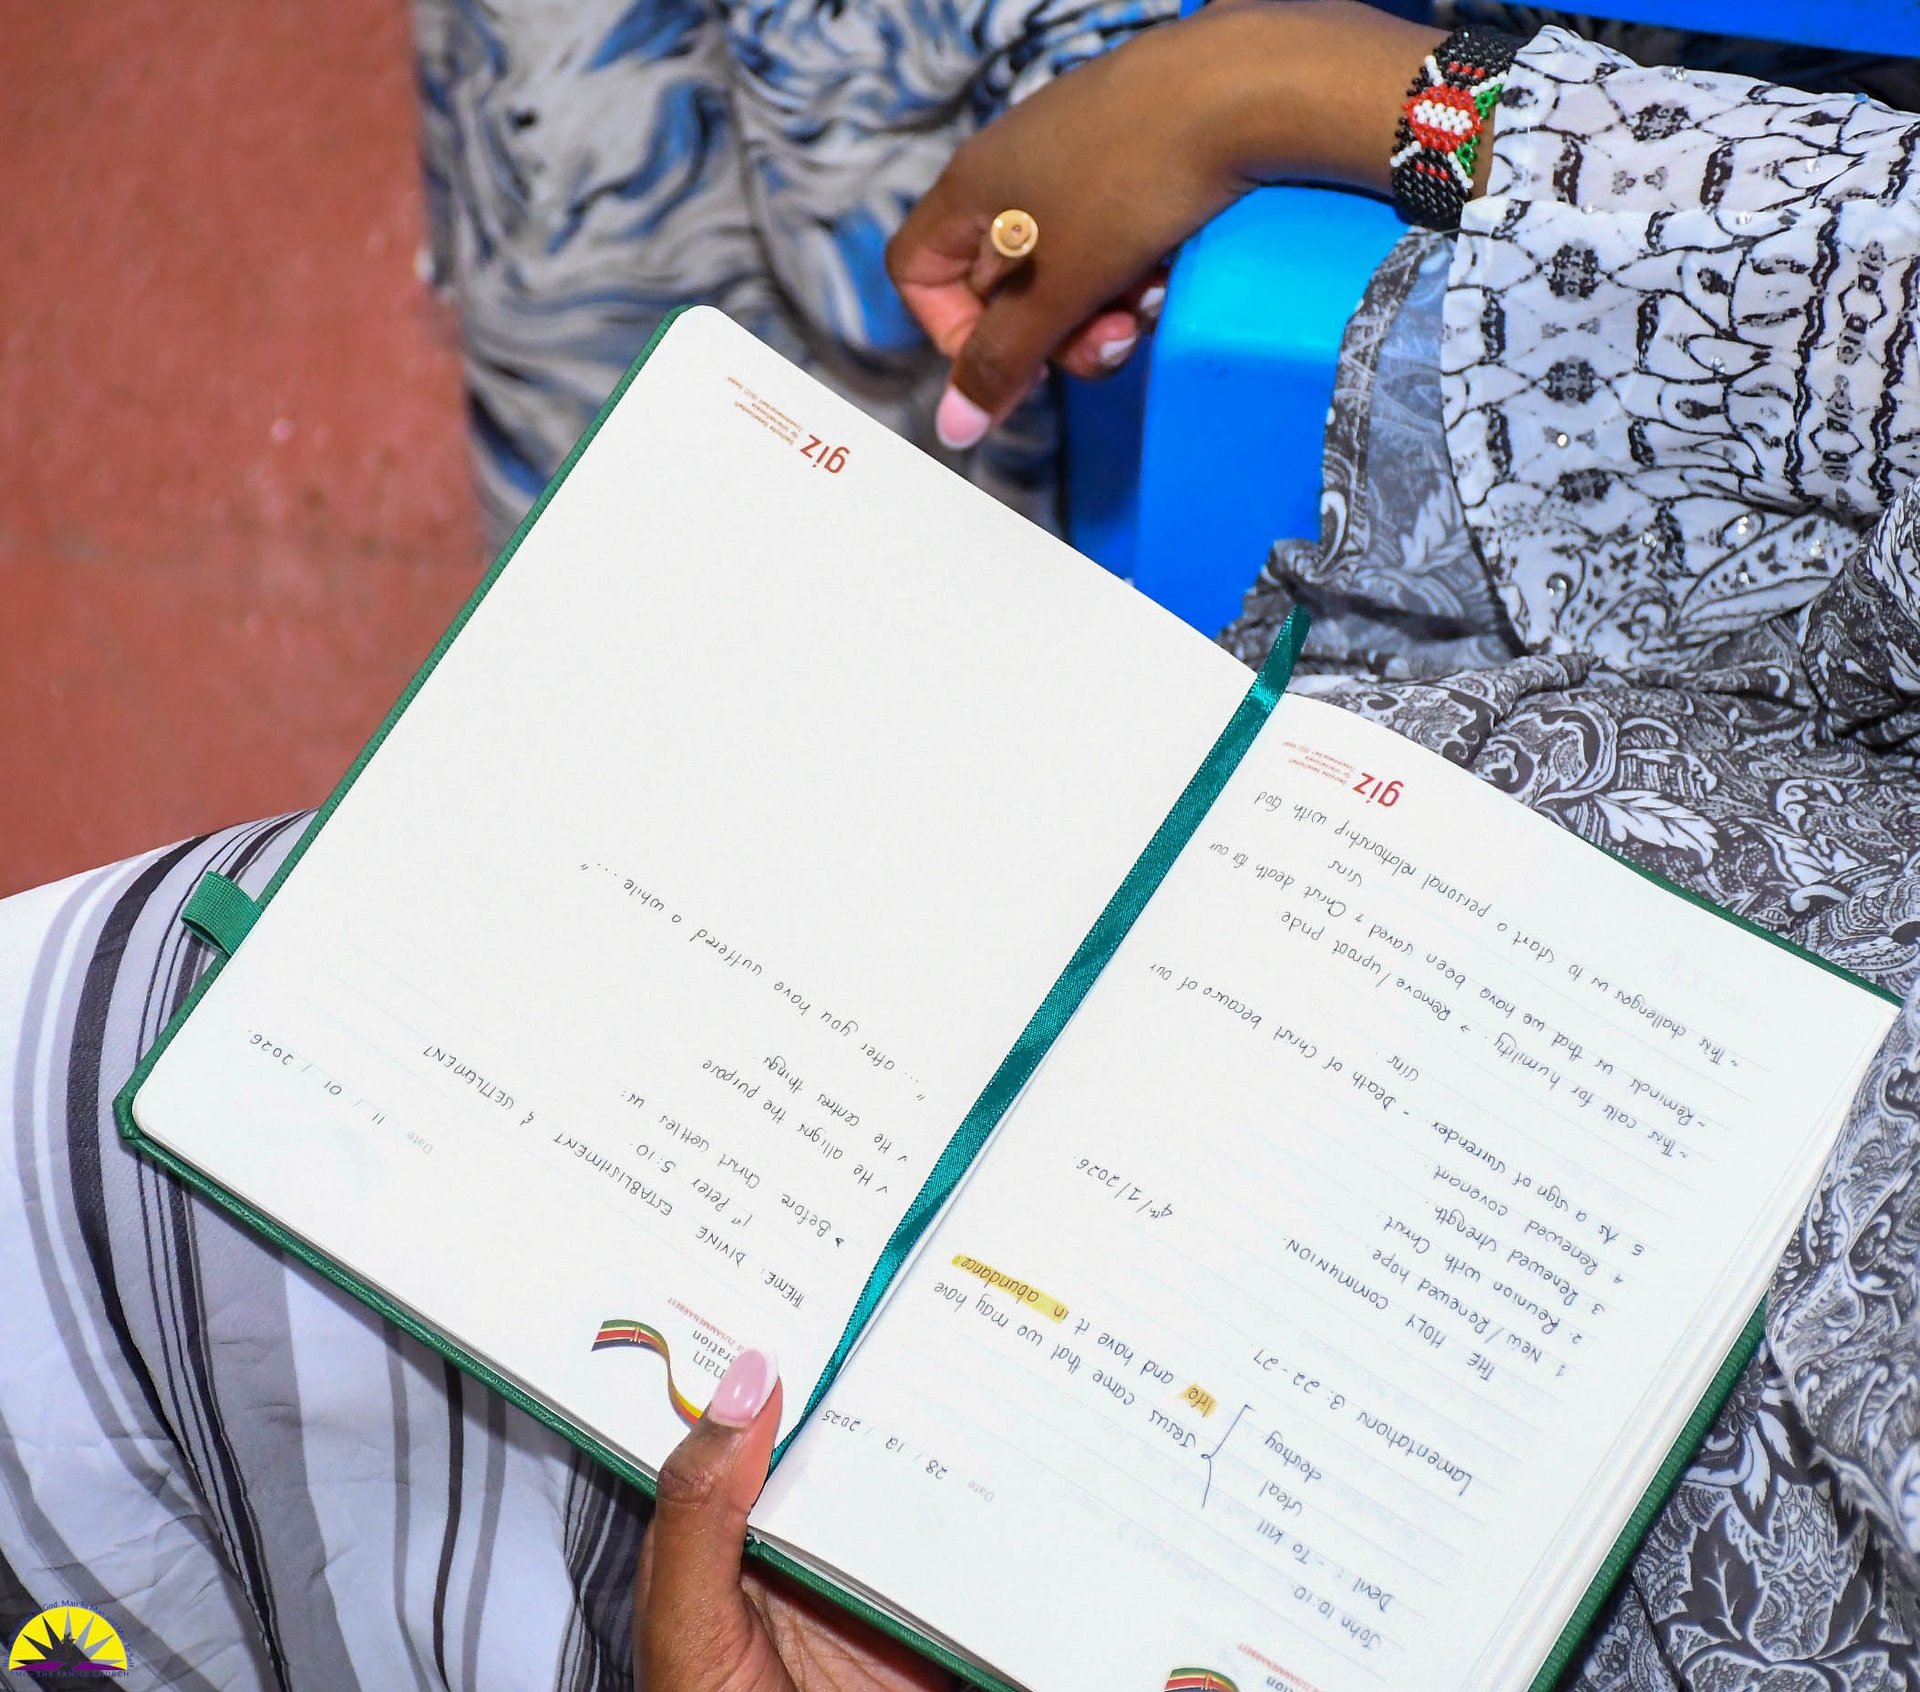 ZUSAMMENARBEIT
Date 28 / 12 / 2025
John 10:10.
Devil : - To kill
steal
destroy
Jesus came that we may have
life and have it in abundance.
Lamentations 3:22-27
4th/1/2026.
THE HOLY COMMUNION.
1 New/Renewed hope
2. Reunion with Christ.
3. Renewed strength.
4. Renewed covenant.
5. As a sign of surrender. - Death of Christ because of our
sins.
~ This calls for humility. → Remove / uproot pride.
~ Reminds us that we have been saved, Christ death for our
sins
~ This challenges us to start a personal relationship with God
giz
Deutsche Gesellschaft
für Internationale
Zusammenarbeit (GIZ) GmbH
ZUSAMMENARBEIT
Date 11 / 01 / 2026.
THEME: DIVINE ESTABLISHMENT & SETTLEMENT
1st Peter 5:10.
Before Christ settles us:
v He alligns the purpose
v He centres things
" ... after you have suffered a while ... "
giz
Deutsche Gesellschaft
für Internationale
Zusammenarbeit (GIZ) GmbH
THE FAMILY CHURCH